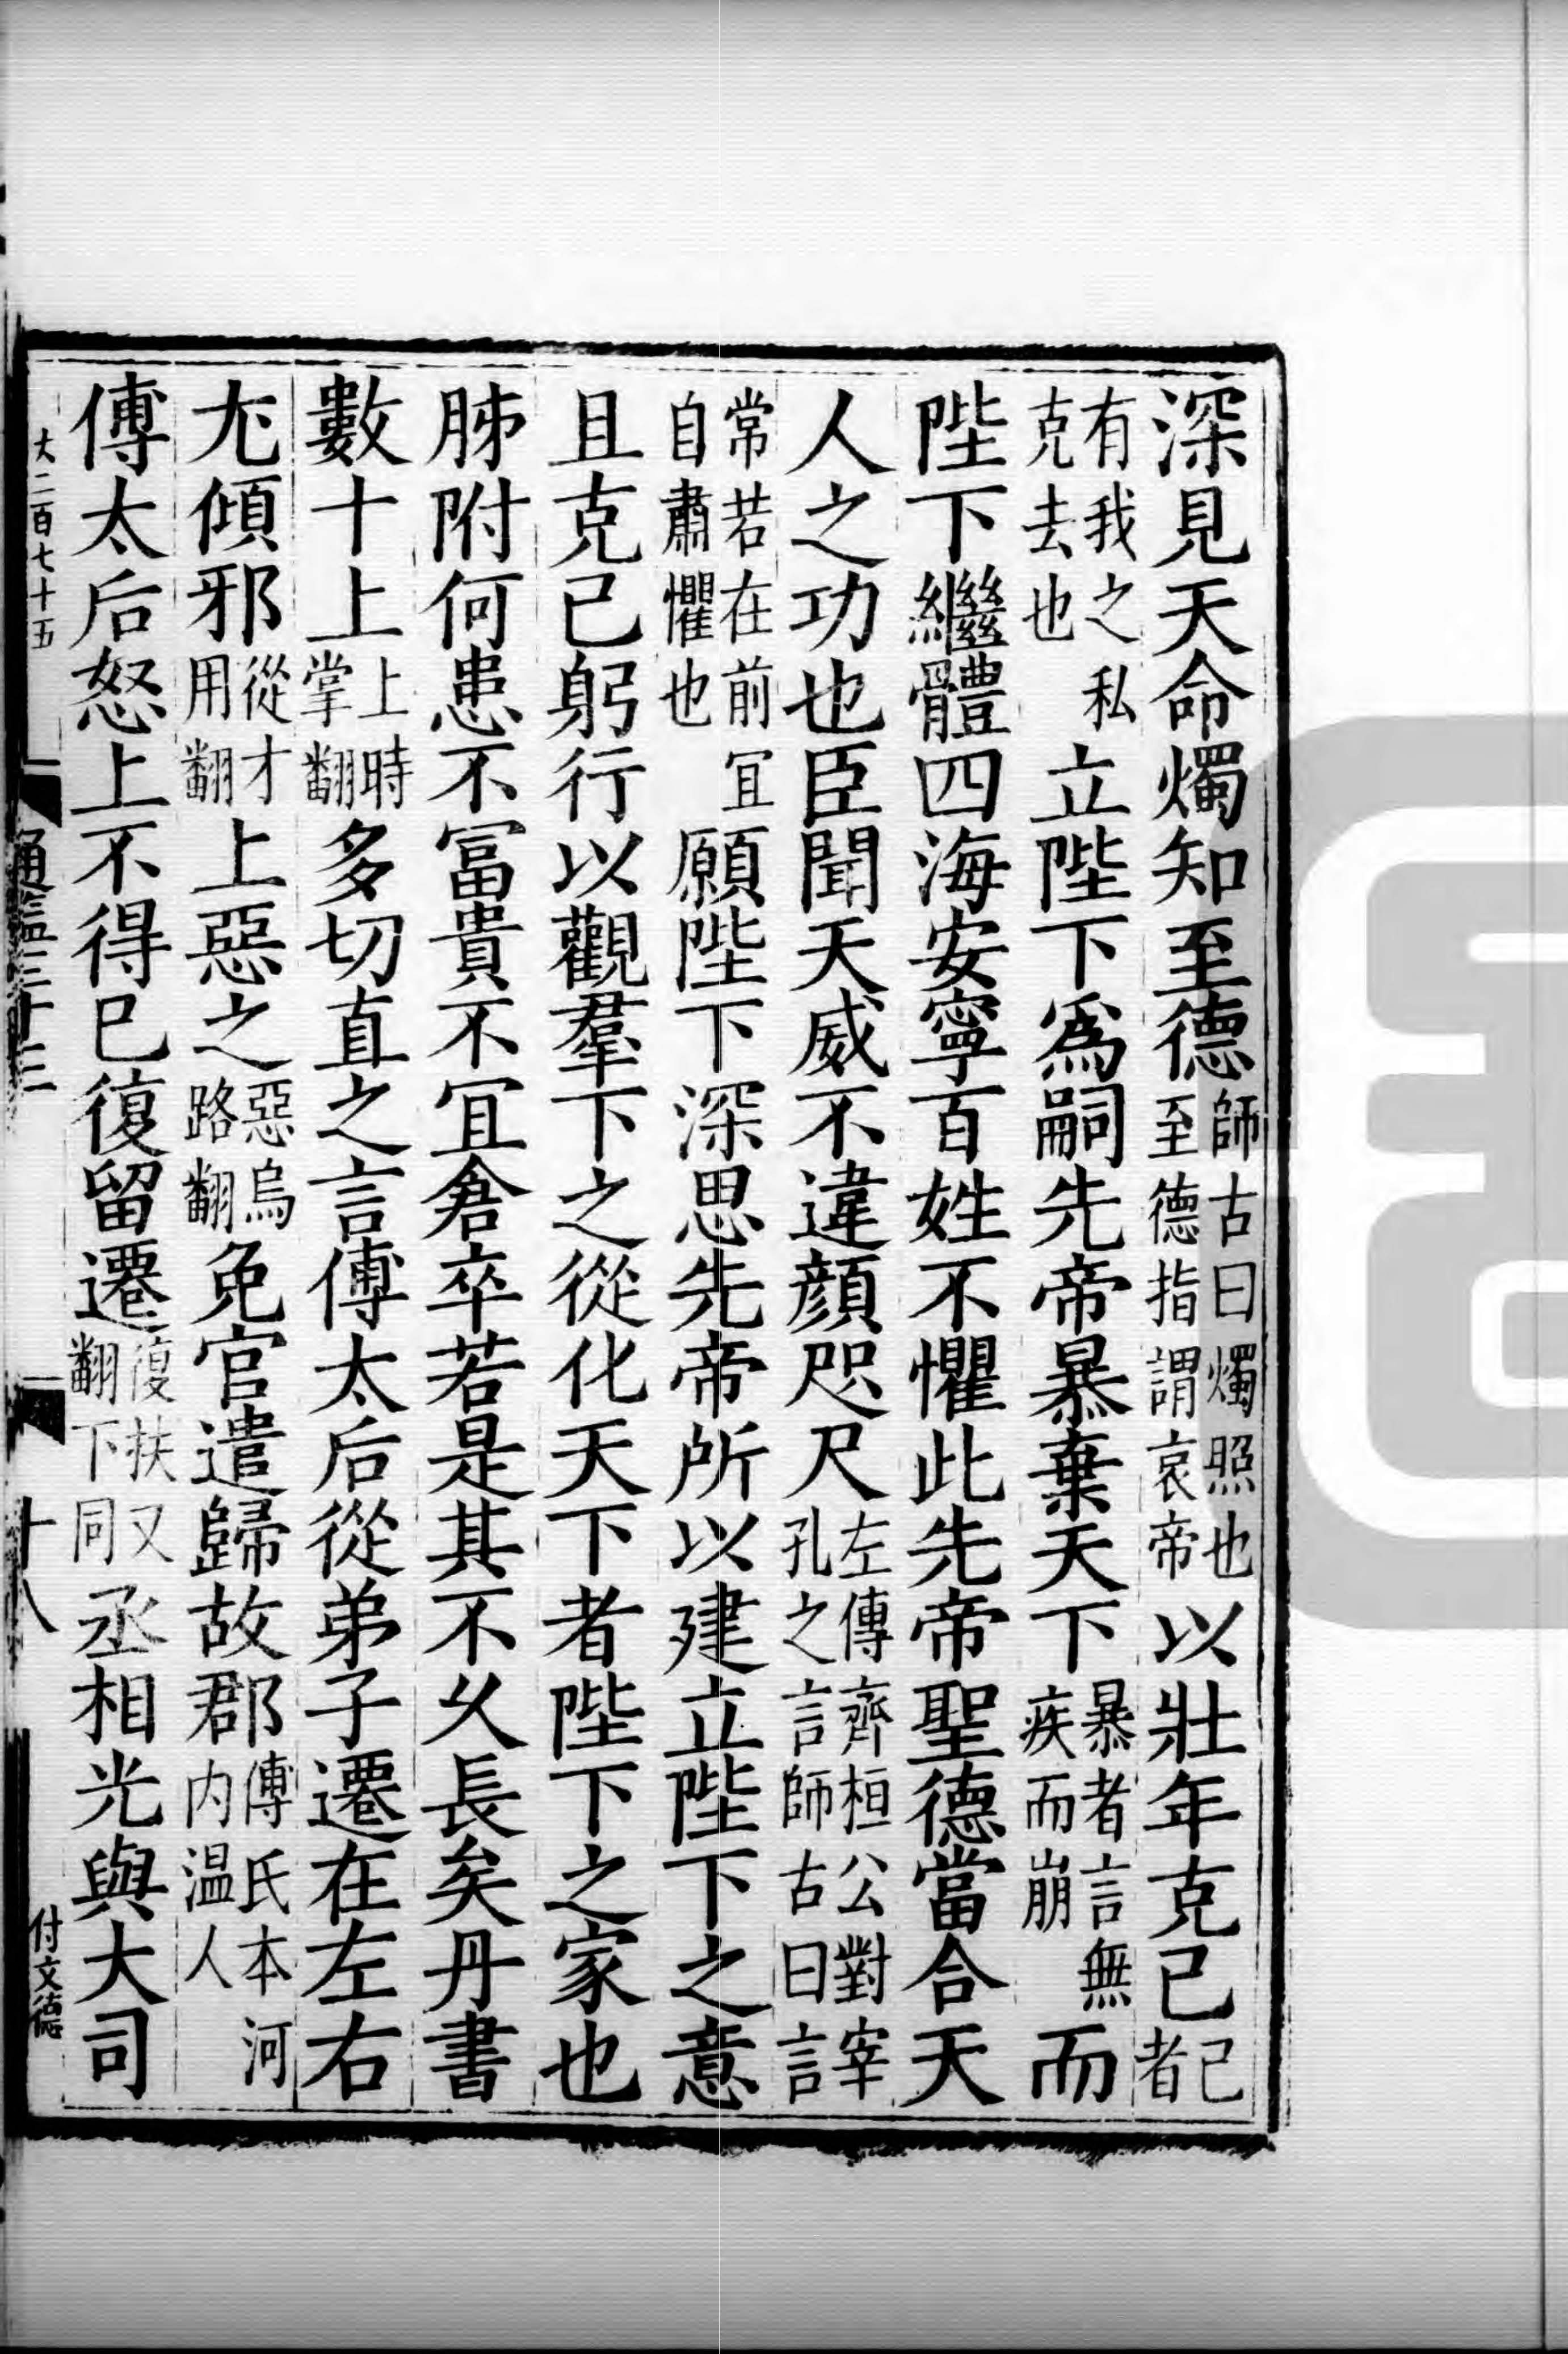 深見天命燭知至德師古曰燭照也至德指謂哀帝以壯年克己己者
有我之私克去也立陛下爲嗣先帝暴棄天下暴者言無疾而崩而
陛下繼體四海安寧百姓不懼此先帝聖德當合天
人之功也臣聞天威不違顏咫尺左傳齊桓公對宰孔之言師古曰言
常若在前宜自肅懼也願陛下深思先帝所以建立陛下之意
且克己躬行以觀羣下之從化天下者陛下之家也
胏附何患不富貴不宜倉卒若是其不久長矣丹書
數十上上時掌翻多切直之言傅太后從弟子遷在左右
尤傾邪從才用翻上惡之惡烏路翻免官遣歸故郡傅氏本河内温人
傅太后怒上不得已復留遷復扶又翻下同丞相光與大司
大二百七十五
通鑑三十三
十八
付文德